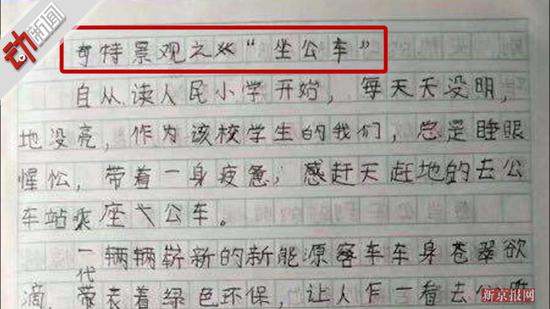 动新闻
奇特景观之“坐公车”
自从读人民小学开始，每天天没明，
地没亮，作为该校学生的我们，总是睡眼
惺忪，带着一身疲惫，感赶天赶地的去公
车站乘座公车。
一辆辆崭新的新能源客车车身苍翠欲
滴，代表着绿色环保，让人乍一看去
新京报网